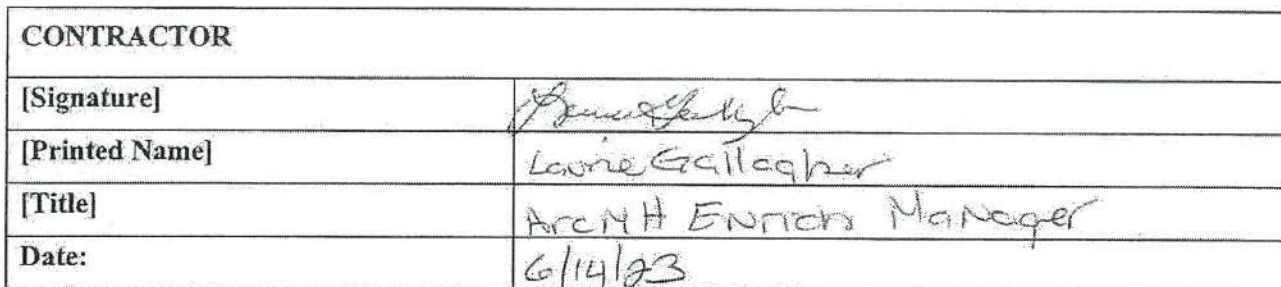 CONTRACTOR
[Signature]
[Printed Name] Laurie Gallagher
[Title] Arc Enrich Manager
Date: 6/14/23